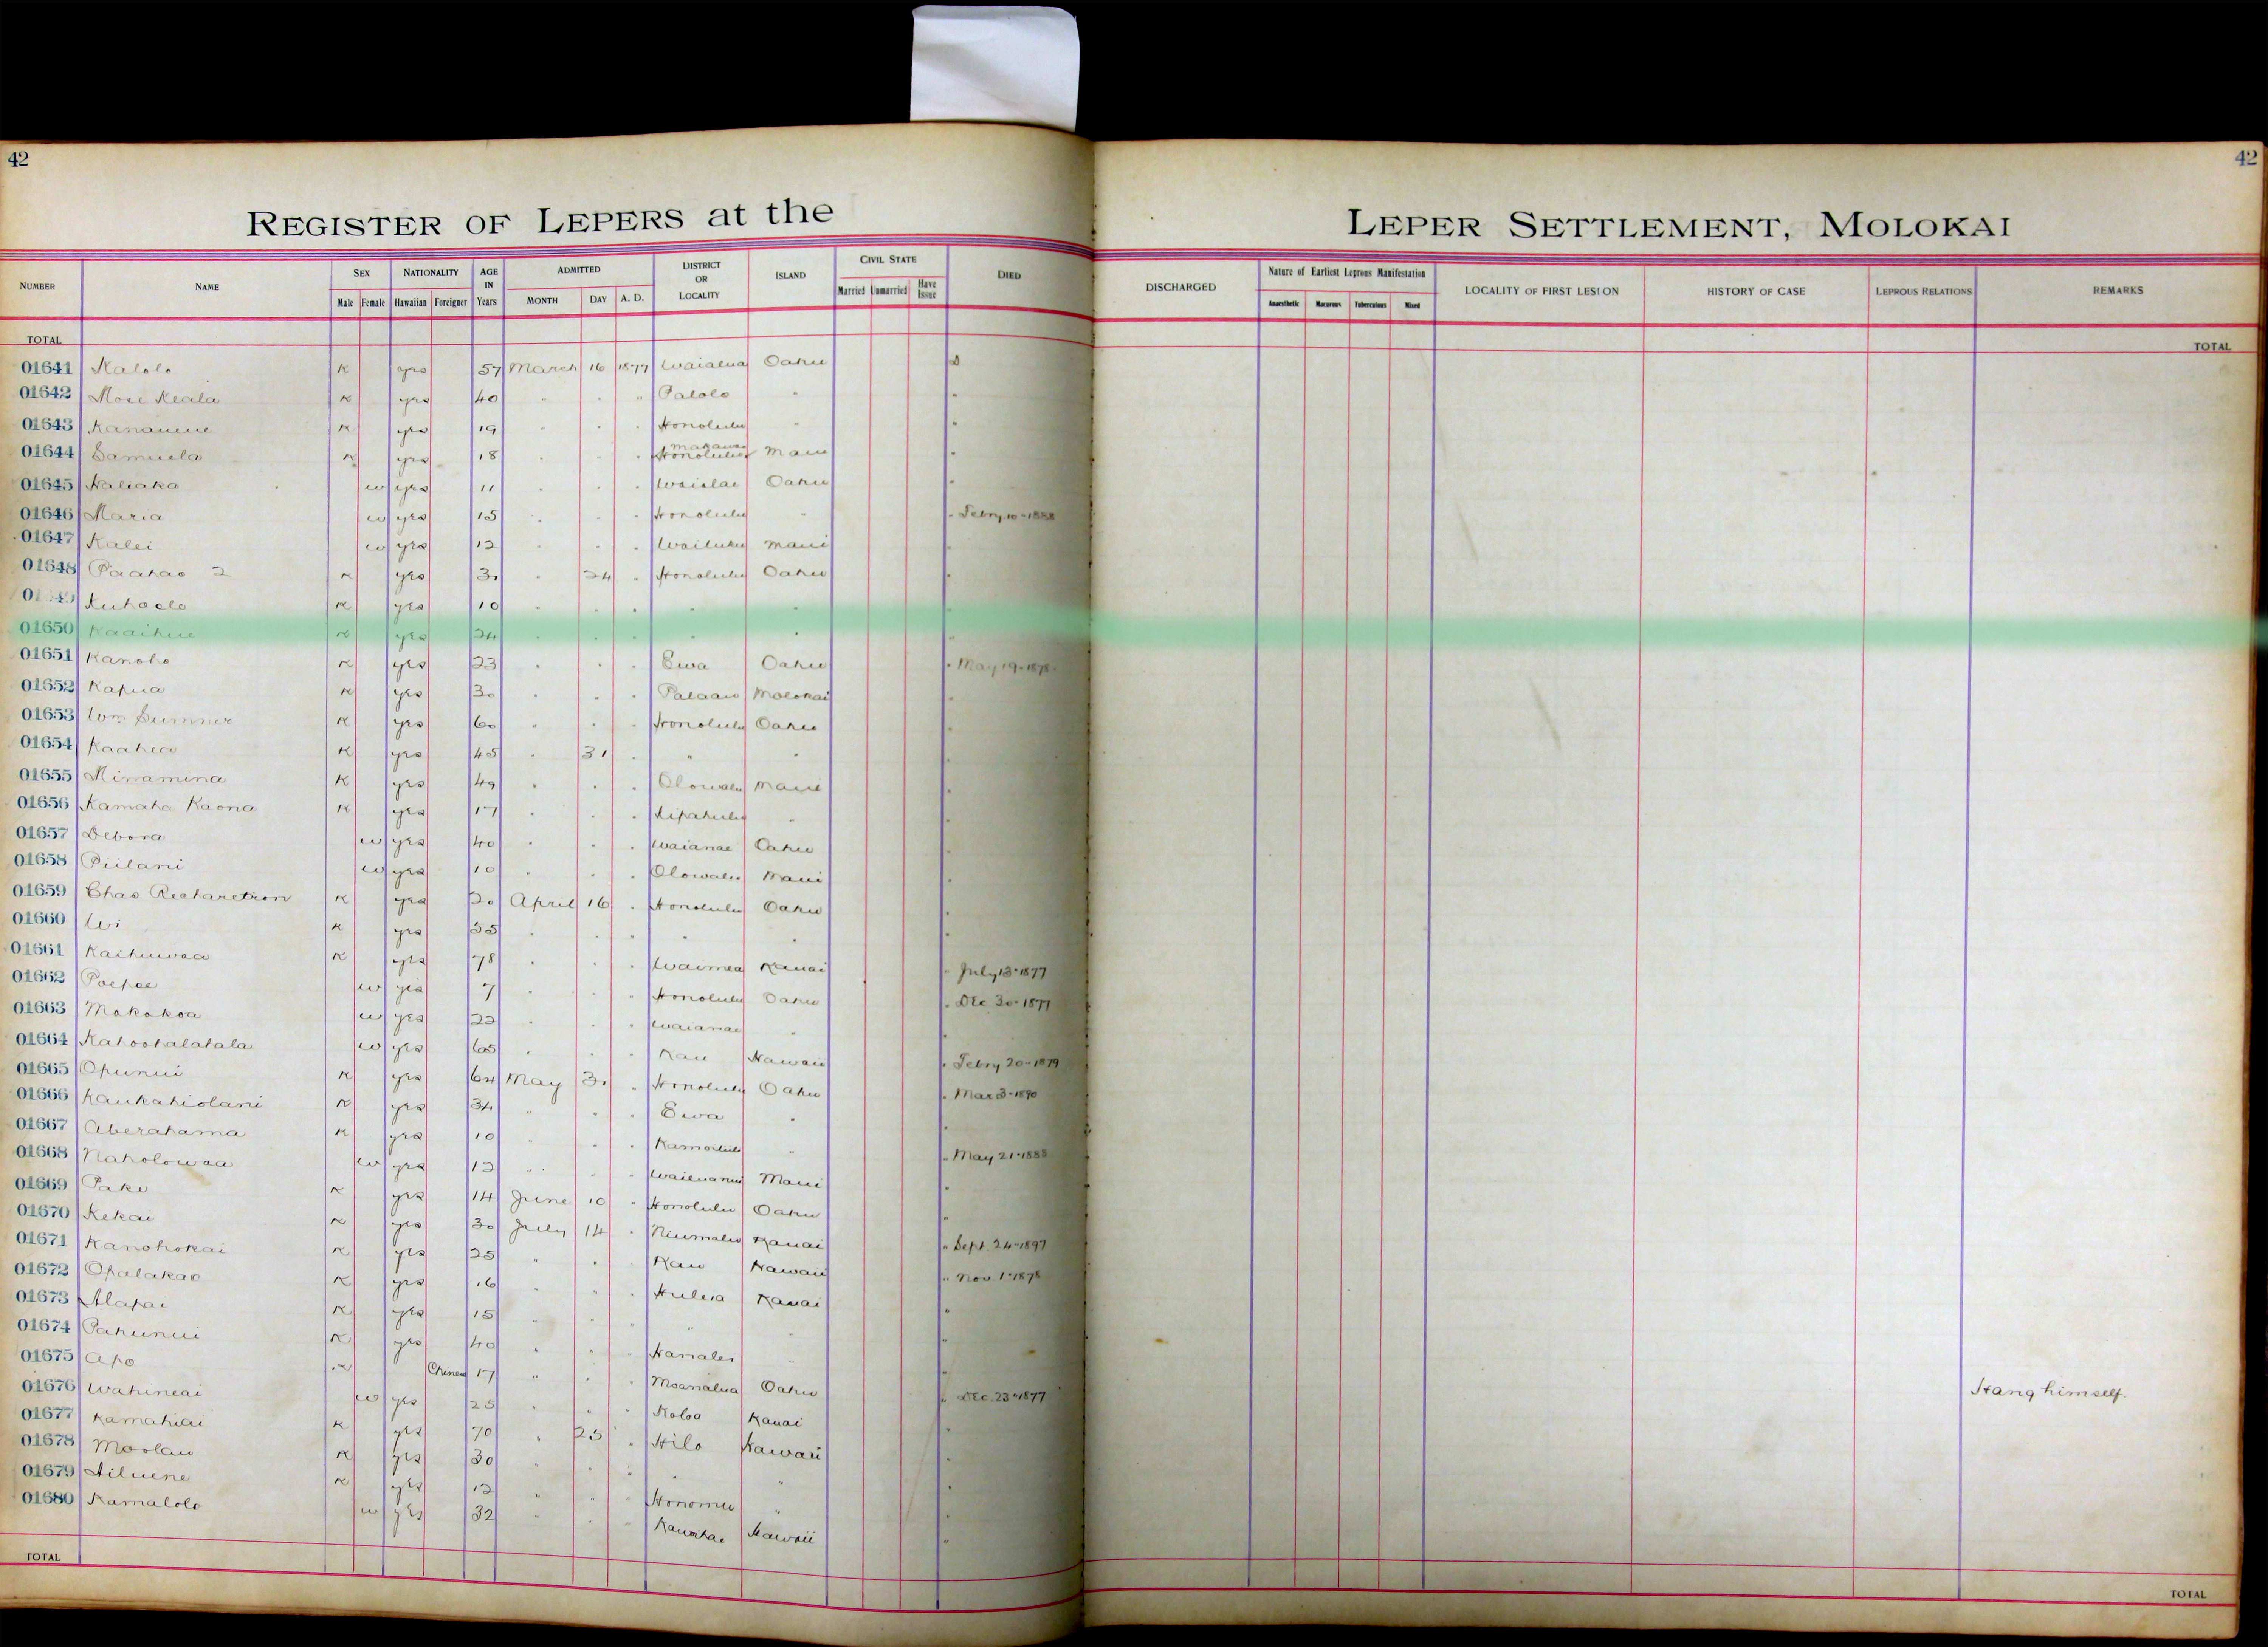 42
42
REGISTER OF LEPERS at the LEPER SETTLEMENT, MOLOKAI
NUMBER NAME SEX NATIONALITY AGE IN Years ADMITTED DISTRICT OR LOCALITY ISLAND CIVIL STATE DIED DISCHARGED Nature of Earliest Leprous Manifestation LOCALITY OF FIRST LESION HISTORY OF CASE LEPROUS RELATIONS REMARKS
Male Female Hawaiian Foreigner MONTH DAY A. D. Married Unmarried Have Issue Anaesthetic Macurous Tuberculous Mixed
TOTAL TOTAL
01641 Kalolo K yes 57 March 16 1877 Waialua Oahu D
01642 Mose Keala K yes 40 " " " Palolo " "
01643 Kananuene K yes 19 " " " Honolulu " "
01644 Samuela K yes 18 " " " Honolulu Makawao Maui "
01645 Naliaka w yes 11 " " " Waialae Oahu "
01646 Maria w yes 15 " " " Honolulu " " Febry 10-1888
01647 Kalei w yes 12 " " " Wailuku Maui "
01648 Paahao 2 K yes 30 " 24 " Honolulu Oahu "
Kuhaelo K yes 10 " " " " " "
01650 Kaaihue K yes 24 " " " " " "
01651 Kanoho K yes 23 " " " Ewa Oahu " May 19-1878
01652 Kapua K yes 30 " " " Palaau Molokai "
01653 Wm Sumner K yes 60 " " " Honolulu Oahu "
01654 Kaahea K yes 45 " 31 " " " "
01655 Minamina K yes 49 " " " Olowalu Maui "
01656 Kamaha Kaona K yes 17 " " " Kipahulu " "
01657 Debora w yes 40 " " " Waianae Oahu "
01658 Piilani w yes 10 " " " Olowalu Maui "
01659 Chas Recharetson K yes 20 April 16 " Honolulu Oahu "
01660 Wi K yes 35 " " " " " "
01661 Kaihuwaa K yes 78 " " " Waimea Kauai " July 13-1877
01662 Poepoe w yes 7 " " " Honolulu Oahu " Dec 30-1877
01663 Makokoa w yes 22 " " " Waianae " "
01664 Kahoohalahala w yes 65 " " " Kau Hawaii " Febry 20-1879
01665 Opunui K yes 64 May 31 " Honolulu Oahu " Mar 3-1890
01666 Kaukahiolani K yes 34 " " " Ewa " "
01667 Aberahama K yes 10 " " " Kamoiliili " " May 21-1888
01668 Naholowaa w yes 12 " " " Wailuanui Maui "
01669 Pake K yes 14 June 10 " Honolulu Oahu "
01670 Kekai K yes 30 July 14 " Niumalu Kauai " Sept. 24-1897
01671 Kanohokai K yes 25 " " " Kau Hawaii " Nov. 1-1878
01672 Opalakao K yes 16 " " " Huleia Kauai "
01673 Alapai K yes 15 " " " " " "
01674 Pahunui K yes 40 " " " Hanalei " "
01675 Apo K Chinese 17 " " " Moanalua Oahu " Dec. 23-1877 Hang himself.
01676 Wahineai w yes 25 " " " Koloa Kauai "
01677 Kamahiai K yes 70 " 25 " Hilo Hawaii "
01678 Moolau K yes 30 " " " " " "
01679 Ailuene K yes 12 " " " Honomu " "
01680 Kamalolo w yes 32 " " " Kawaihae Hawaii "
TOTAL TOTAL